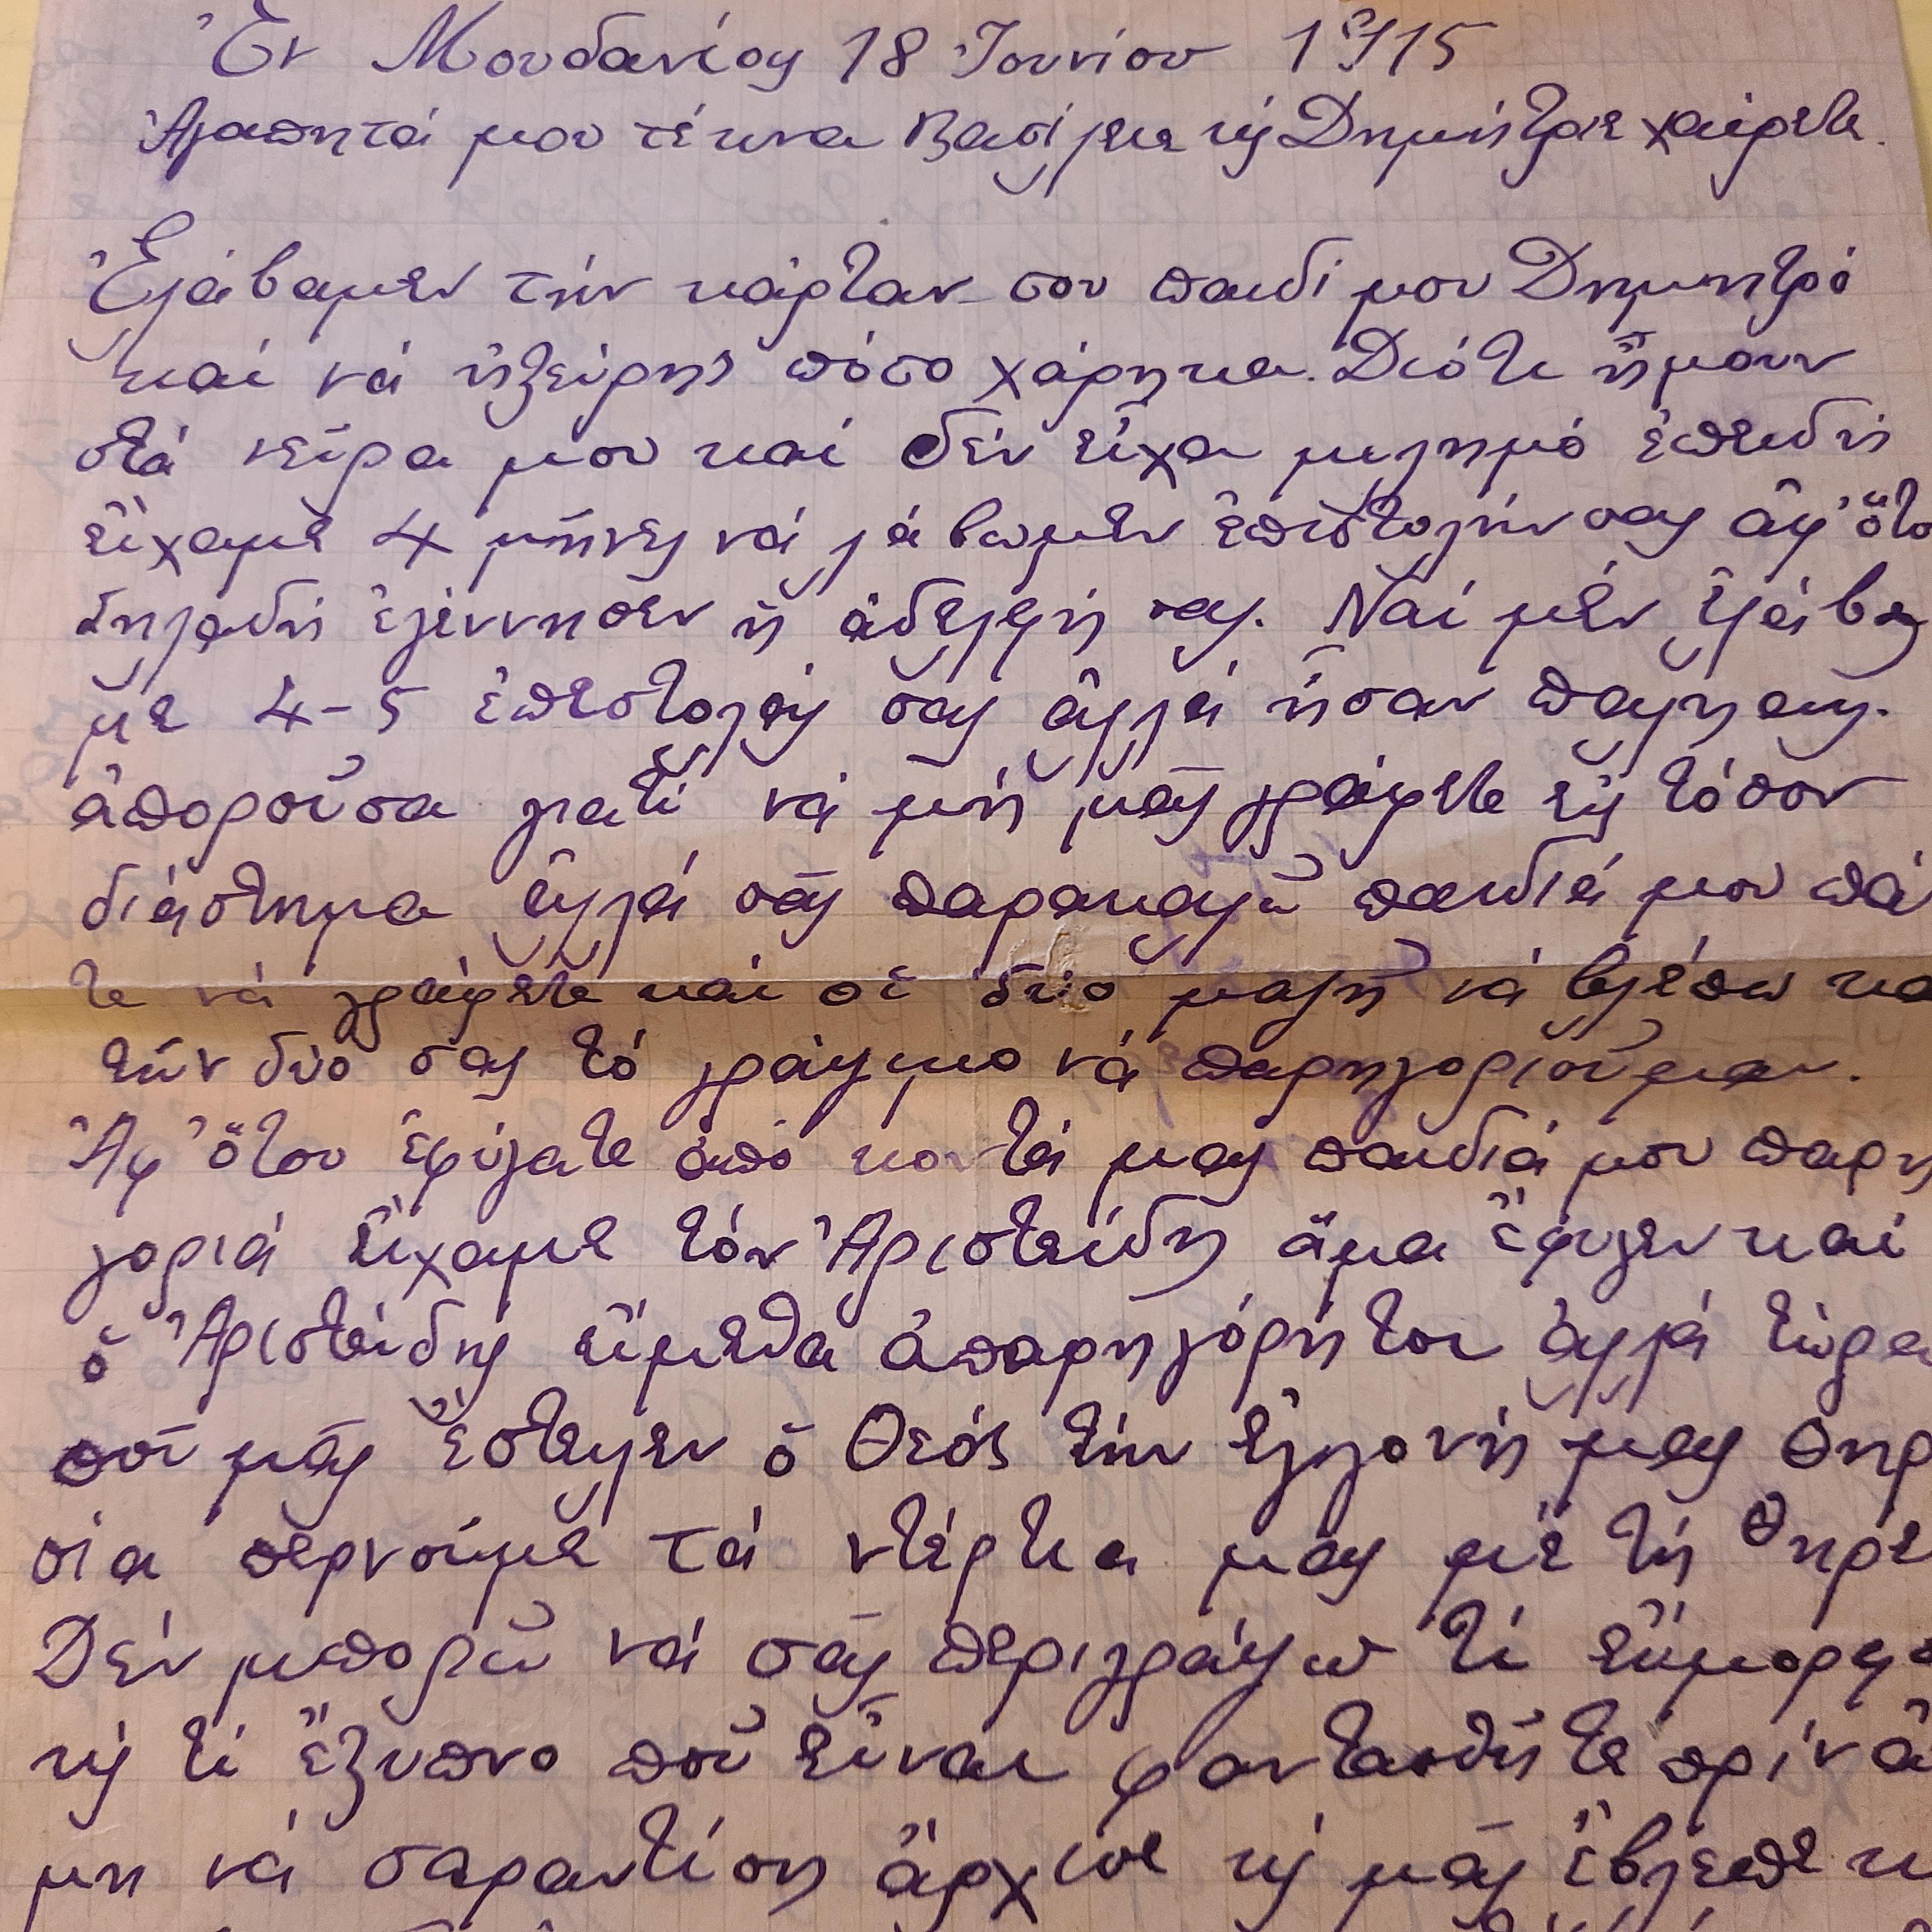 Ἐν Μουδανίοις 18 Ἰουνίου 1915
Ἀγαπητά μου τέκνα Βασίλειε κ Δημήτριε χαίρετε.
Ἐλάβαμεν τήν κάρταν σου παιδί μου Δημητρό
καί νά ἠξεύρης πόσο χάρηκα. Διότι ἤμουν
στά νεῦρα μου καί δέν εἶχα μιλημό ἐπειδή
εἴχαμε 4 μῆνες νά λάβωμεν ἐπιστολήν σας ἀφ' ὅτο
δηλαδή ἐγέννησεν ἡ ἀδελφή σας. Ναί μέν ἐλάβα
με 4-5 ἐπιστολάς σας ἀλλά ἦσαν παληαις.
ἀποροῦσα γιατί νά μή μᾶς γράφετε εἰς τόσον
διάστημα ἀλλά σᾶς παρακαλῶ παιδιά μου πά
τε νά γράφετε καί οἱ δύο μαζῆ νά βλέπω κα
τῶν δύο σας τό γράψιμο νά παρηγοριοῦμαι.
Ἀφ' ὅτου ἐφύγατε ἀπό κοντά μας παιδιά μου παρη
γοριά εἴχαμε τόν Ἀριστείδη ἅμα ἔφυγεν καί
ὁ Ἀριστείδης εἴμεθα ἀπαρηγόρητοι ἀλλά τώρα
ποῦ μᾶς ἔστειλεν ὁ Θεός τήν ἐγγονή μας Θηρε
σία περνοῦμε τά ντέρτια μας μέ τή Θηρε
Δέν μπορῶ νά σᾶς περιγράψω τί εὔμορφο
κ τί ἔξυπνο ποῦ εἶναι φαντασθῆτε πρίν ἀ
μη νά σαραντίση ἄρχισε κ μᾶς ἔβλεπε κ